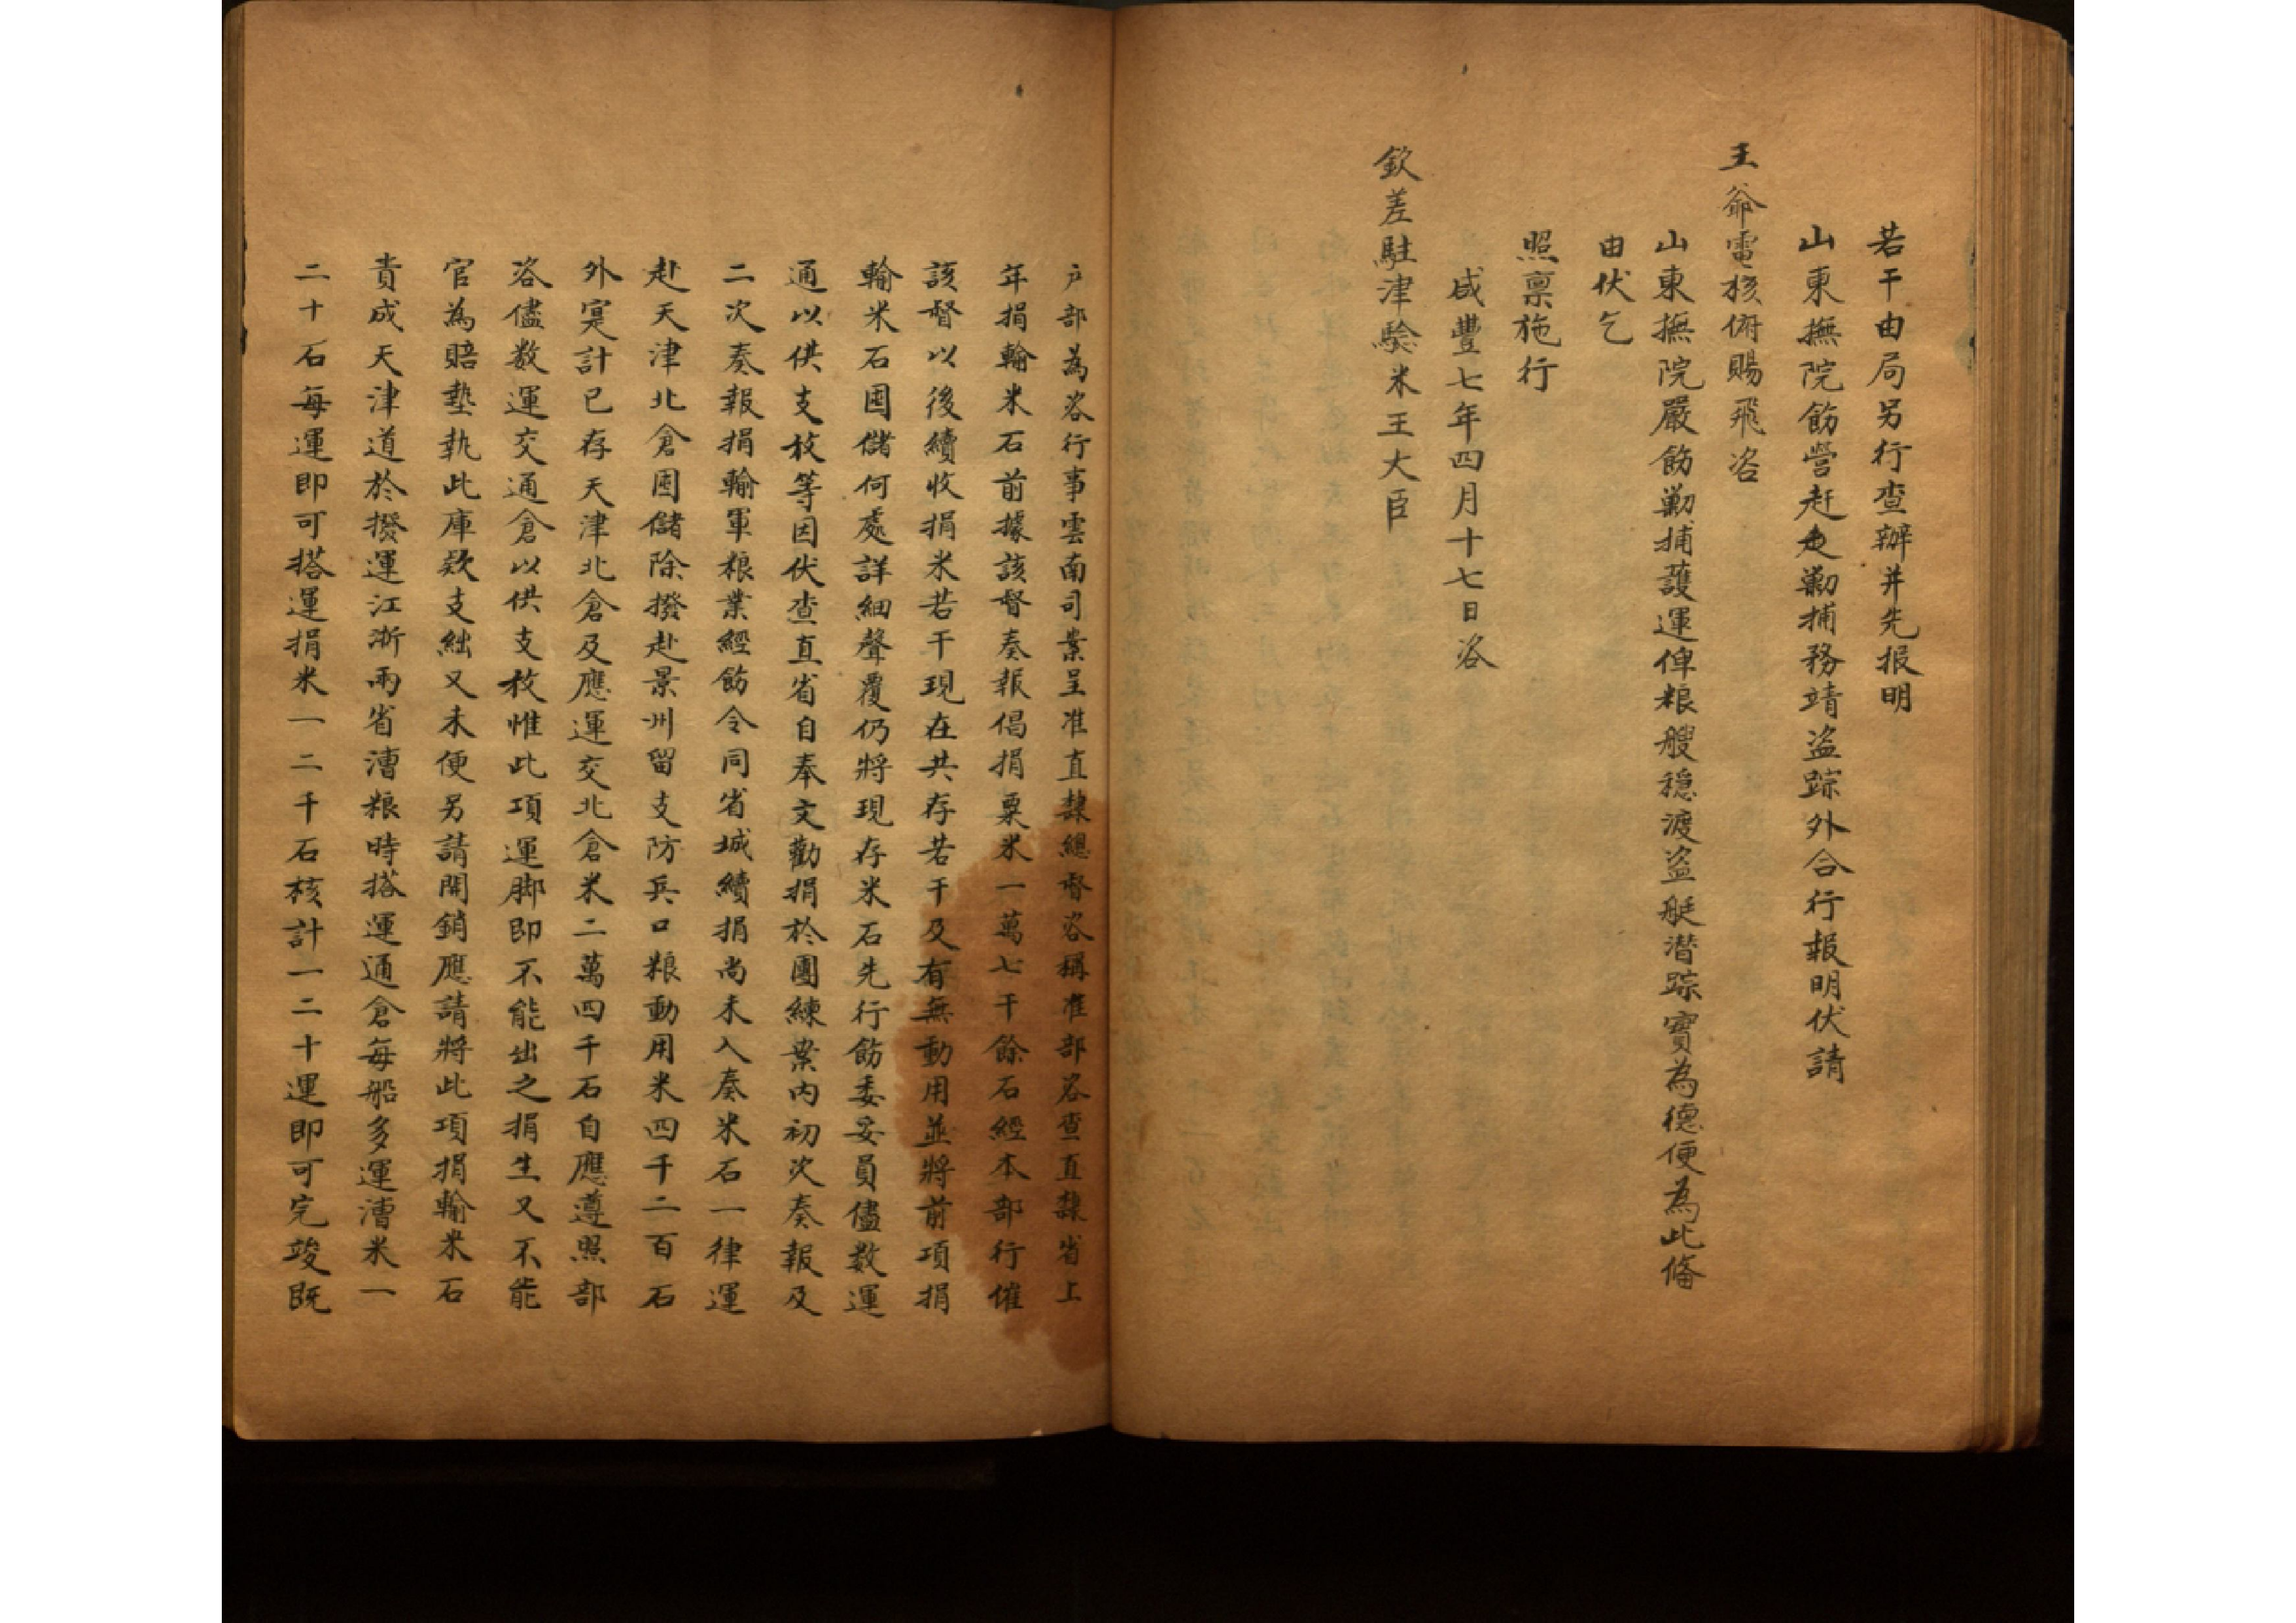 若干由局另行查辦并先报明
山東撫院飭營赶速勦捕務靖盗踪外合行報明伏請
王爺電核俯賜飛咨
山東撫院嚴飭勦捕護運俾粮艘穏渡盗艇潜踪實為德便為此俻
由伏乞
照禀施行
咸豐七年四月十七日咨
欽差駐津驗米王大臣
户部為咨行事雲南司案呈准直隸總督咨稱准部咨查直隸省上
年捐輸米石前據該督奏報倡捐粟米一萬七千餘石經本部行催
該督以後續收捐米若干現在共存若干及有無動用並將前項捐
輸米石囤儲何處詳細聲覆仍將現存米石先行飭委妥員儘数運
通以供支放等因伏查直省自奉文勸捐於團練案内初次奏報及
二次奏報捐輸軍粮業經飭令同省城續捐尚未入奏米石一律運
赴天津北倉囤儲除撥赴景州留支防兵口粮動用米四千二百石
外寔計已存天津北倉及應運交北倉米二萬四千石自應遵照部
咨儘数運交通倉以供支放惟此項運脚即不能出之捐生又不能
官為賠墊執此庫欵支絀又未便另請開銷應請將此項捐輸米石
責成天津道於撥運江浙兩省漕粮時搭運通倉每船多運漕米一
二十石每運即可搭運捐米一二千石核計一二十運即可完竣既